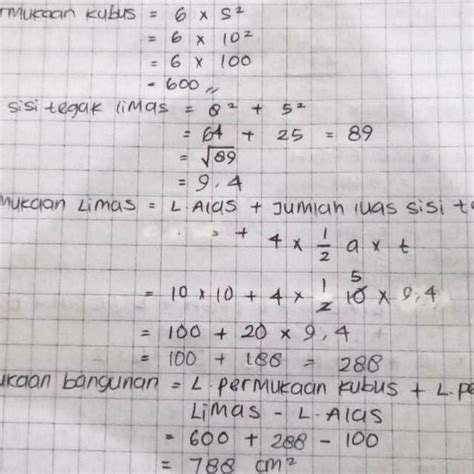 rmukaan kubus = 6 x s²
= 6 x 10²
= 6 x 100
= 600 //
sisi tegak limas = 8² + 5²
= 64 + 25 = 89
= √89
= 9,4
mukaan Limas = L. Alas + Jumlah luas sisi t
+ 4 x 1/2 a x t
= 10 x 10 + 4 x 1/2 10 5 x 9,4
= 100 + 20 x 9,4
= 100 + 188 = 288
ukaan bangunan = L. permukaan kubus + L. pe
Limas - L. Alas
= 600 + 288 - 100
= 788 cm²